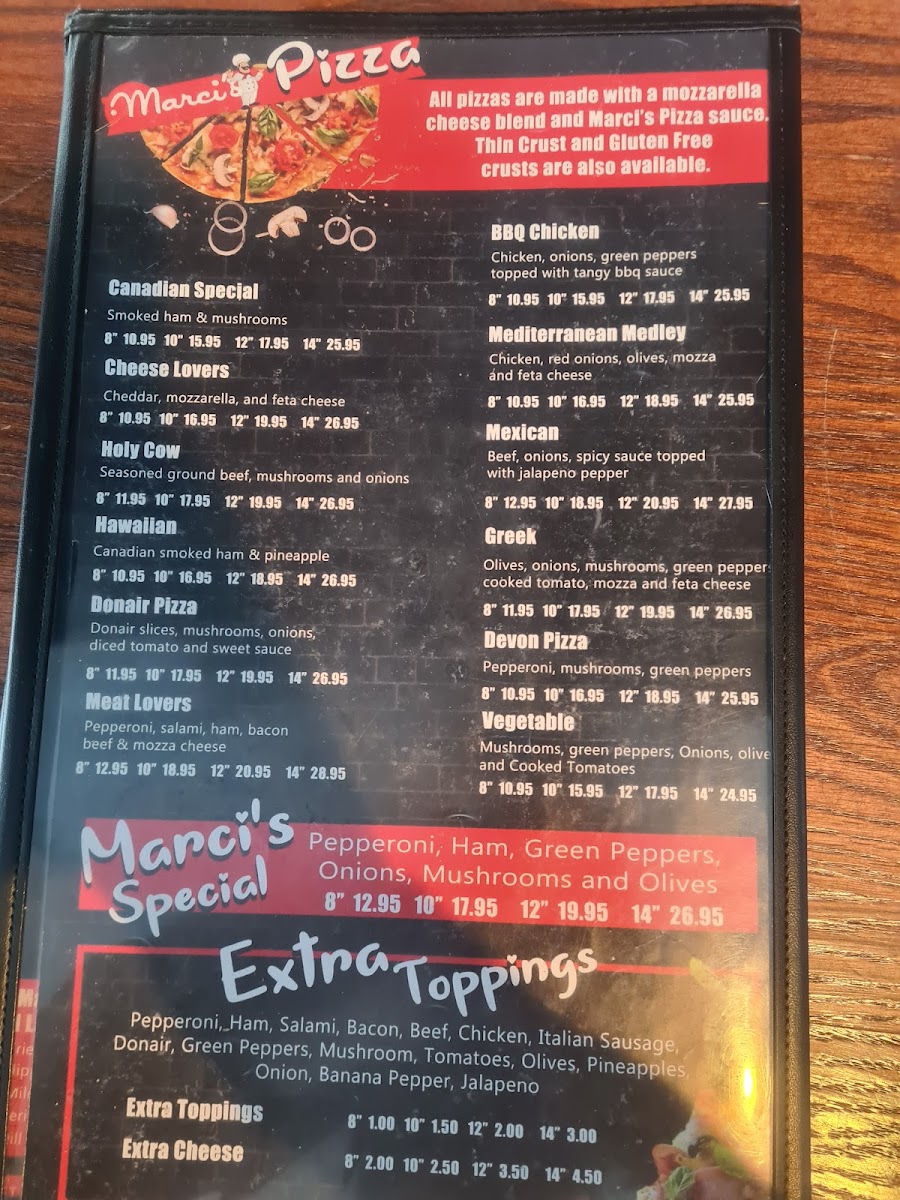 Marci's Pizza
All pizzas are made with a mozzarella
cheese blend and Marci's Pizza sauce.
Thin Crust and Gluten Free
crusts are also available.
Canadian Special
Smoked ham & mushrooms
8" 10.95 10" 15.95 12" 17.95 14" 25.95
Cheese Lovers
Cheddar, mozzarella, and feta cheese
8" 10.95 10" 16.95 12" 19.95 14" 26.95
Holy Cow
Seasoned ground beef, mushrooms and onions
8" 11.95 10" 17.95 12" 19.95 14" 26.95
Hawaiian
Canadian smoked ham & pineapple
8" 10.95 10" 16.95 12" 18.95 14" 26.95
Donair Pizza
Donair slices, mushrooms, onions,
diced tomato and sweet sauce
8" 11.95 10" 17.95 12" 19.95 14" 26.95
Meat Lovers
Pepperoni, salami, ham, bacon
beef & mozza cheese
8" 12.95 10" 18.95 12" 20.95 14" 28.95
BBQ Chicken
Chicken, onions, green peppers
topped with tangy bbq sauce
8" 10.95 10" 15.95 12" 17.95 14" 25.95
Mediterranean Medley
Chicken, red onions, olives, mozza
and feta cheese
8" 10.95 10" 16.95 12" 18.95 14" 25.95
Mexican
Beef, onions, spicy sauce topped
with jalapeno pepper
8" 12.95 10" 18.95 12" 20.95 14" 27.95
Greek
Olives, onions, mushrooms, green peppers
cooked tomato, mozza and feta cheese
8" 11.95 10" 17.95 12" 19.95 14" 26.95
Devon Pizza
Pepperoni, mushrooms, green peppers
8" 10.95 10" 16.95 12" 18.95 14" 25.95
Vegetable
Mushrooms, green peppers, Onions, olive
and Cooked Tomatoes
8" 10.95 10" 15.95 12" 17.95 14" 24.95
Marci's
Special
Pepperoni, Ham, Green Peppers,
Onions, Mushrooms and Olives
8" 12.95 10" 17.95 12" 19.95 14" 26.95
Extra Toppings
Pepperoni, Ham, Salami, Bacon, Beef, Chicken, Italian Sausage,
Donair, Green Peppers, Mushroom, Tomatoes, Olives, Pineapples,
Onion, Banana Pepper, Jalapeno
Extra Toppings
8" 1.00 10" 1.50 12" 2.00 14" 3.00
Extra Cheese
8" 2.00 10" 2.50 12" 3.50 14" 4.50